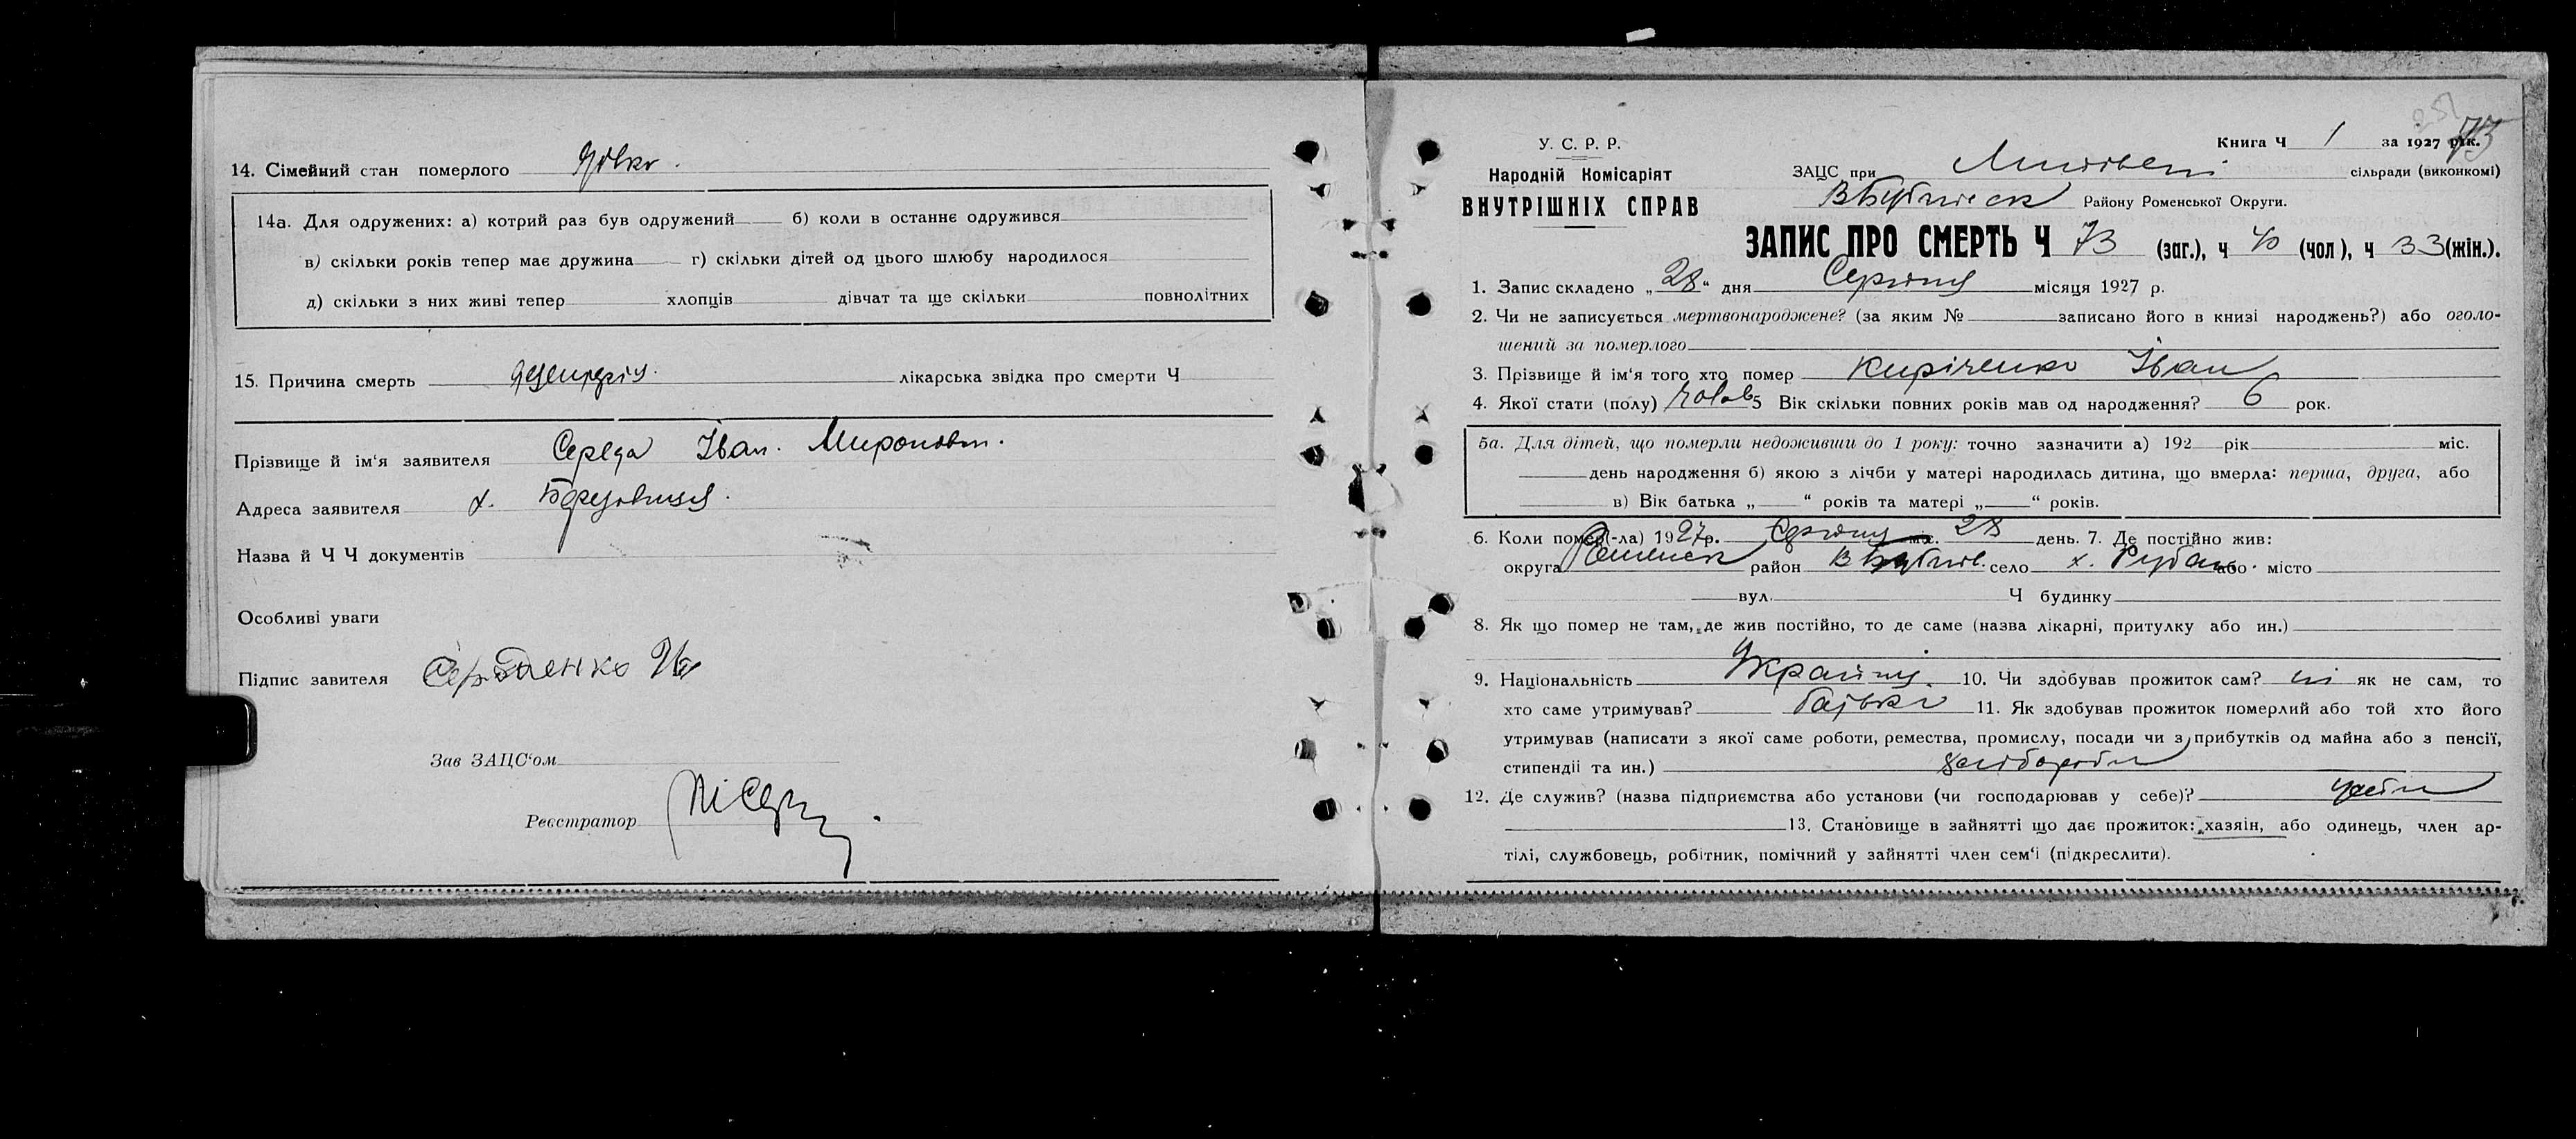 14. Сімейний стан померлого
14а. Для одружених: а) котрий раз був одружений б) коли в останнє одружився
в) скільки років тепер має дружина г) скільки дітей од цього шлюбу народилося
д) скільки з них живі тепер хлопців дівчат та ще скільки повнолітних
15. Причина смерть лікарська звідка про смерти Ч
Прізвище й ім‘я заявителя Середа Іван Миронович.
Адреса заявителя х.
Назва й Ч Ч документів
Особливі уваги
Підпис завителя
Зав ЗАЦС‘ом
Реєстратор
251
73
Книга Ч 1 за 1927 рік.
У. С. Р. Р.
Народній Комісаріят
ВНУТРІШНІХ СПРАВ
ЗАЦС при сільради (виконкомі)
Району Роменської Округи.
ЗАПИС ПРО СМЕРТЬ Ч 73 (заг.), ч 40 (чол), ч 33 (жін.).
1. Запис складено „28“ дня Серпня місяця 1927 р.
2. Чи не записується мертвонароджене? (за яким № записано його в книзі народжень?) або оголо-
шений за померлого
3. Прізвище й ім‘я того хто помер Киріченко Іван
4. Якої стати (полу) чолов 5 Вік скільки повних років мав од народження? 6 рок.
5а. Для дітей, що померли недоживши до 1 року: точно зазначити а) 192 рік міс.
день народження б) якою з лічби у матері народилась дитина, що вмерла: перша, друга, або
в) Вік батька „ “ років та матері „ “ років.
6. Коли помер(-ла) 1927р. Серпня міс. 28 день. 7. Де постійно жив:
округа Роменськ район село х. або місто
вул. Ч будинку
8. Як що помер не там, де жив постійно, то де саме (назва лікарні, притулку або ин.)
9. Національність 10. Чи здобував прожиток сам? ні як не сам, то
хто саме утримував? батько 11. Як здобував прожиток померлий або той хто його
утримував (написати з якої саме роботи, ремества, промислу, посади чи з прибутків од майна або з пенсії,
стипендіі та ин.)
12. Де служив? (назва підприємства або установи (чи господарював у себе)?
13. Становище в зайнятті що дає прожиток: хазяін, або одинець, член ар-
тілі, службовець, робітник, помічний у зайнятті член сем‘і (підкреслити).